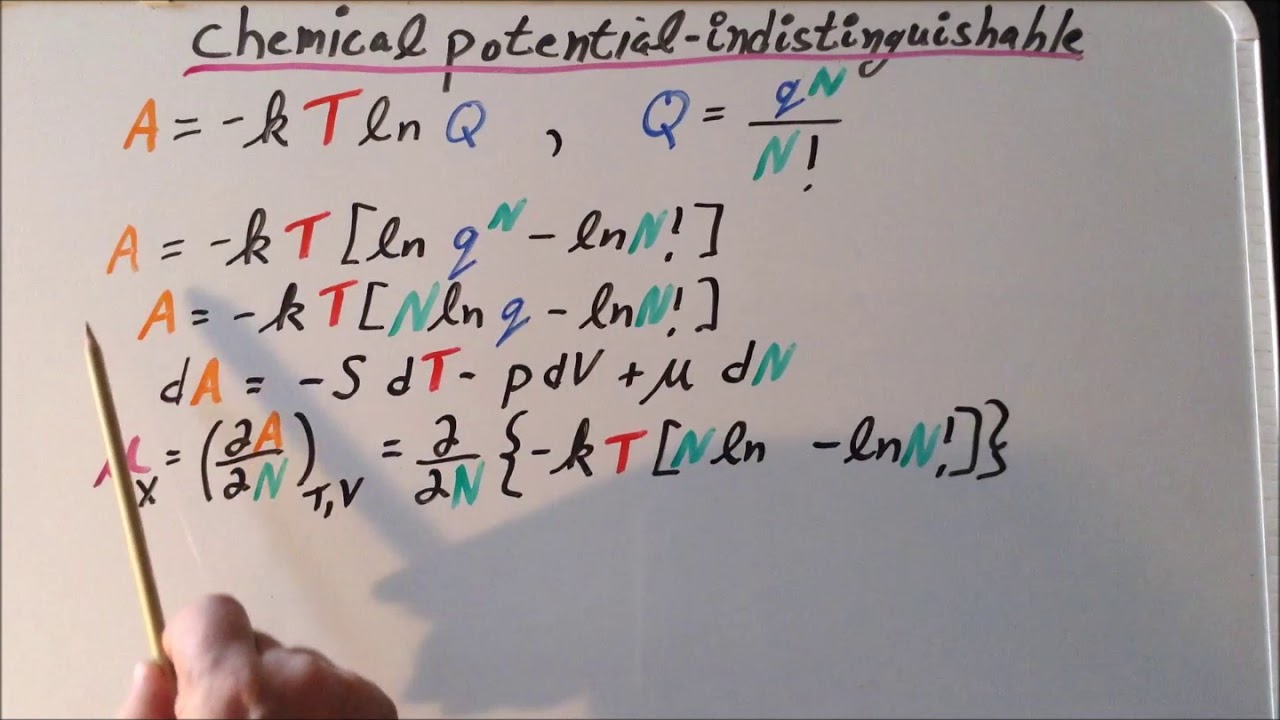 Chemical potential-indistinguishable
A = -kT ln Q , Q = q^N / N!
A = -kT[ln q^N - lnN!]
A = -kT[N ln q - lnN!]
dA = -S dT - p dV + μ dN
μ_x = (∂A/∂N)_T,V = ∂/∂N {-kT[N ln - lnN!]}